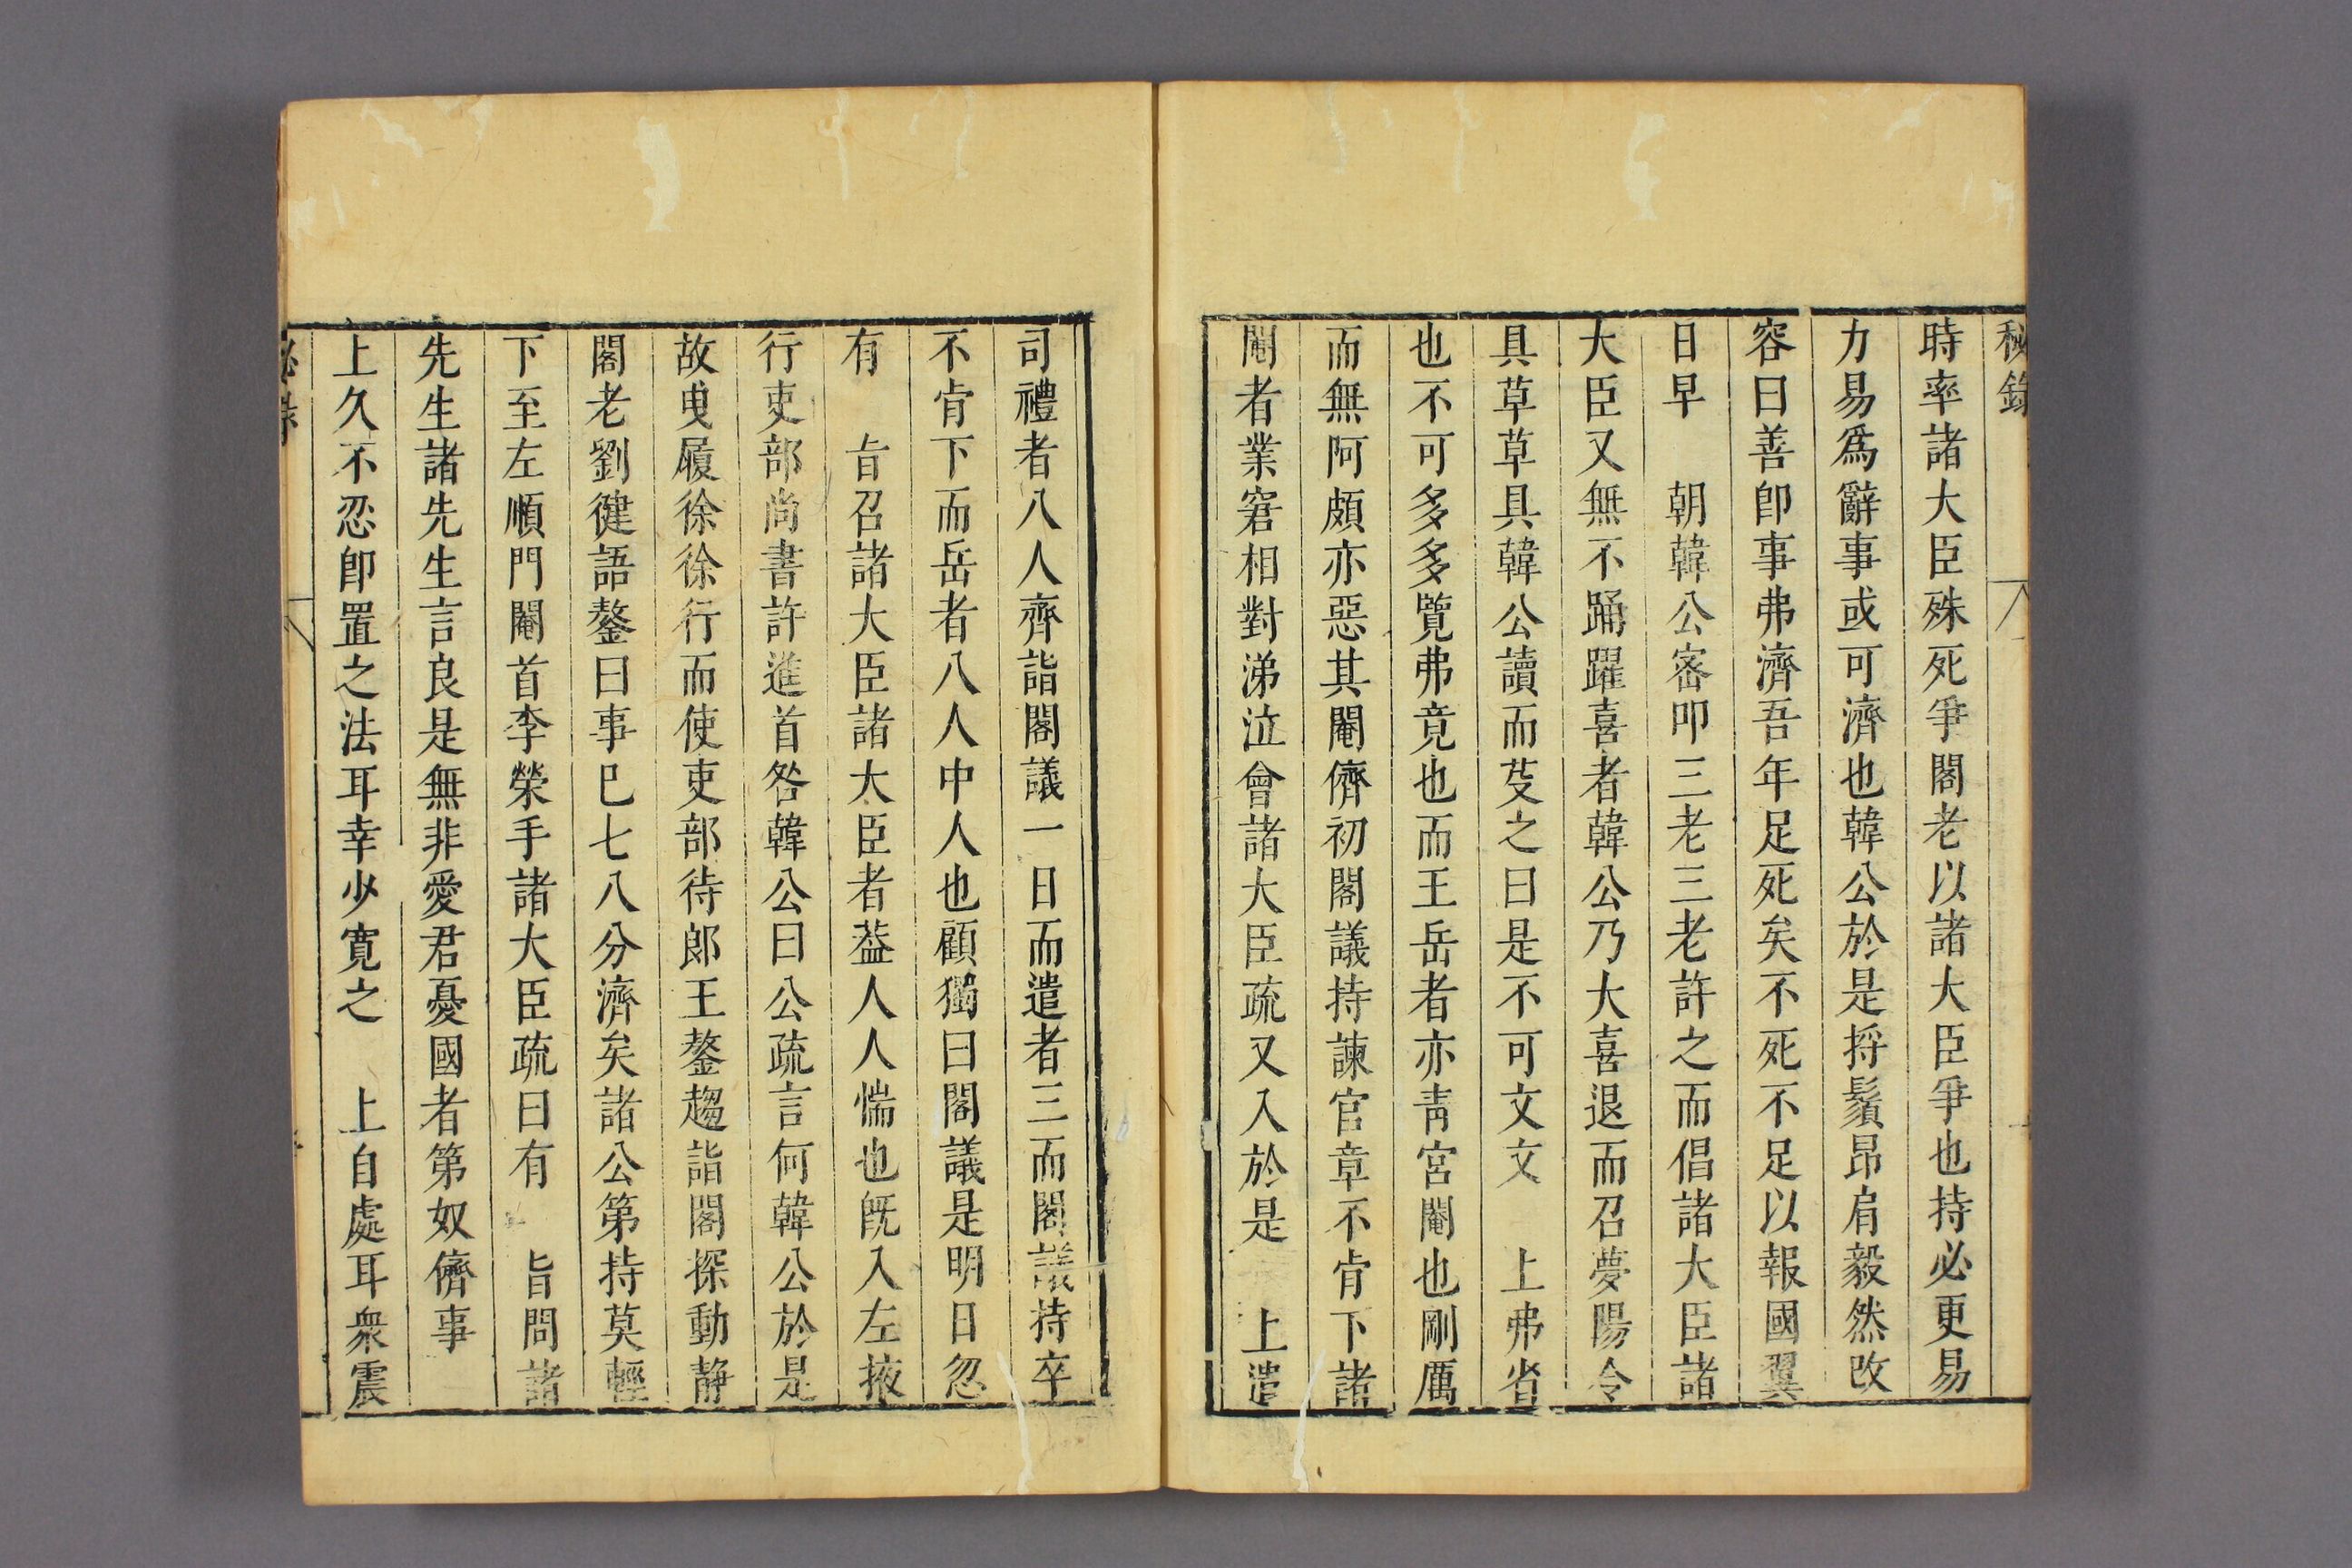 秘錄
時率諸大臣殊死爭閣老以諸大臣爭也持必更易
力易爲辭事或可濟也韓公於是捋鬚昂肩毅然改
容曰善卽事弗濟吾年足死矣不死不足以報國翼
日早　朝韓公密叩三老三老許之而倡諸大臣諸
大臣又無不踊躍喜者韓公乃大喜退而召夢陽令
具草草具韓公讀而芟之曰是不可文文　上弗省
也不可多多覽弗竟也而王岳者亦靑宮閹也剛厲
而無阿頗亦惡其閹儕初閣議持諫官章不肯下諸
閹者業窘相對涕泣會諸大臣疏又入於是　上遣
司禮者八人齊詣閣議一日而遣者三而閣議持卒
不肯下而岳者八人中人也顧獨曰閣議是明日忽
有　旨召諸大臣諸大臣者葢人人惴也旣入左掖
行吏部尚書許進首咎韓公曰公疏言何韓公於是
故曳履徐徐行而使吏部待郎王鏊趨詣閣探動靜
閣老劉健語鏊曰事巳七八分濟矣諸公第持莫輕
下至左順門閹首李榮手諸大臣疏曰有　旨問諸
先生諸先生言良是無非愛君憂國者第奴儕事
上久不忍卽置之法耳幸少寬之　上自處耳衆震